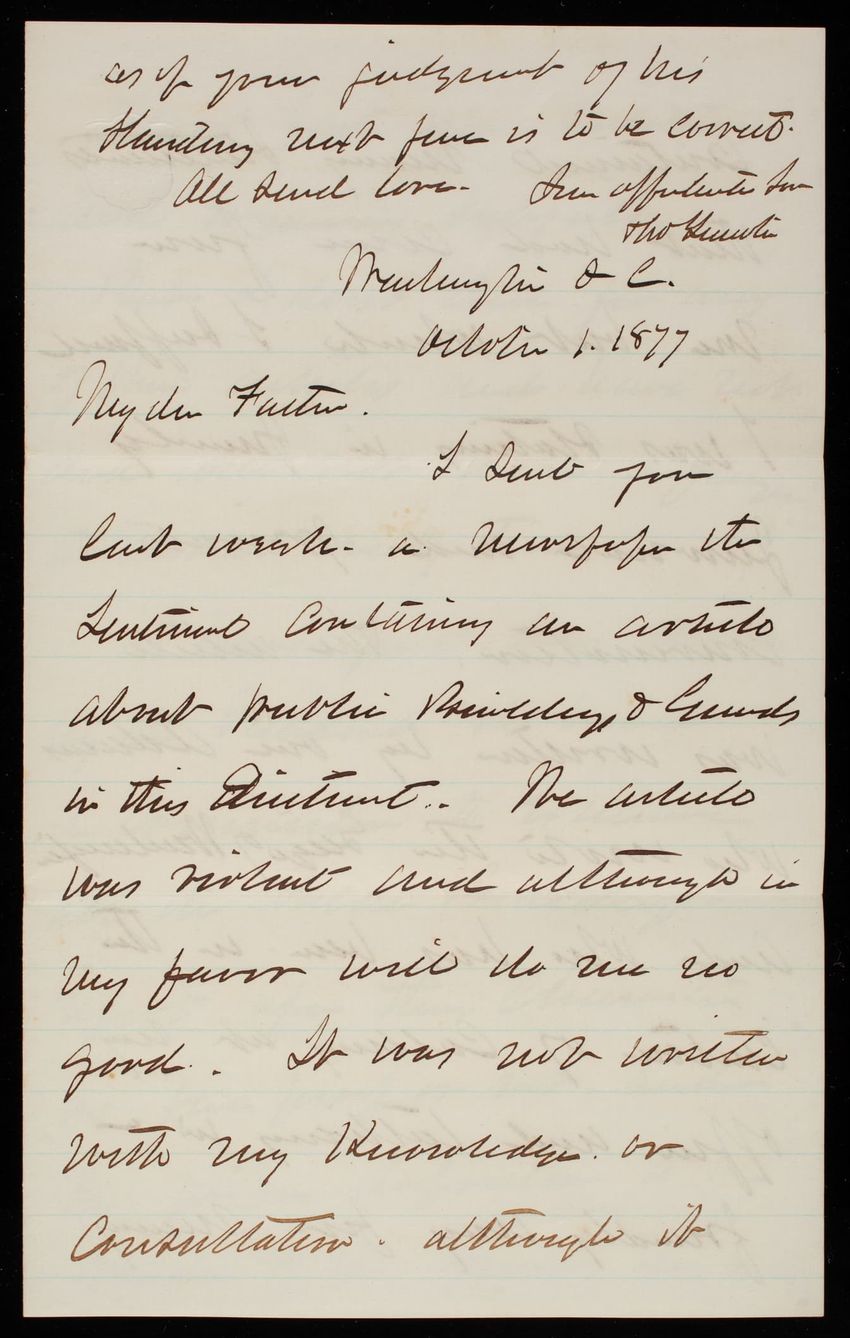 as if your judgment of his
standing next June is to be correct.
All send love. Your affectionate Son
Tho L Casey
Washington D C.
October 1. 1877
My dear Father.
I sent you
last week. a newspaper the
Sentinel containing an article
about public Buildings & Grounds
in this District.. The article
was violent and although in
my favor will do me no
good. It was not written
with my Knowledge. or
Consultation. although it